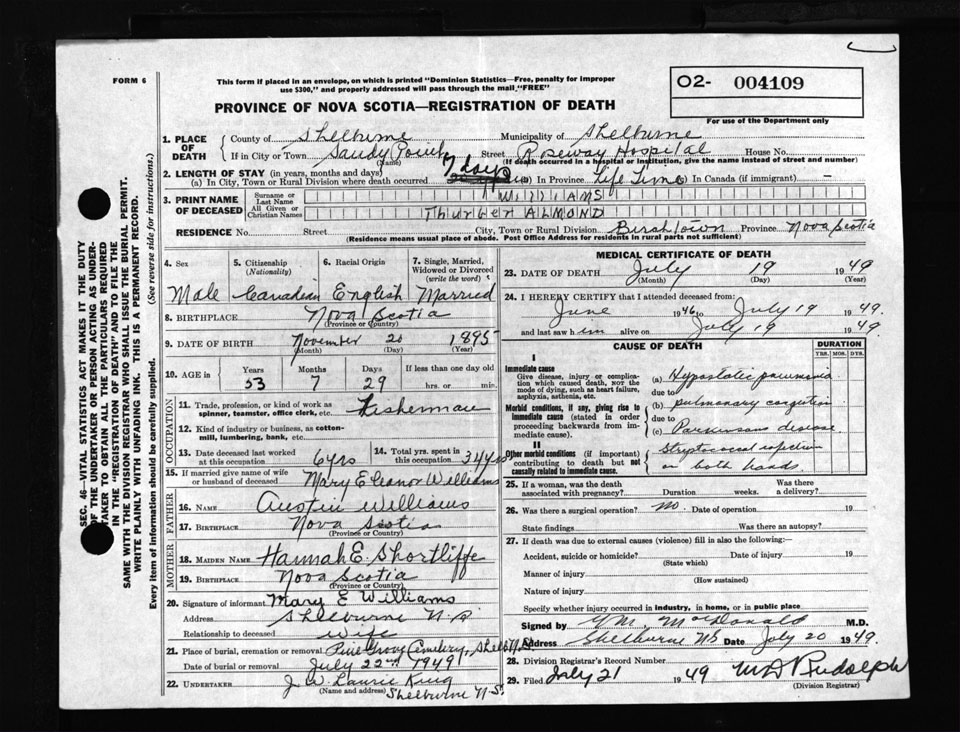 FORM 6
This form if placed in an envelope, on which is printed "Dominion Statistics—Free, penalty for improper
use $300," and properly addressed will pass through the mail "FREE"
O2- 004109
For use of the Department only
PROVINCE OF NOVA SCOTIA—REGISTRATION OF DEATH
SEC. 46—VITAL STATISTICS ACT MAKES IT THE DUTY
OF THE UNDERTAKER OR PERSON ACTING AS UNDER-
TAKER TO OBTAIN ALL THE PARTICULARS REQUIRED
IN THE "REGISTRATION OF DEATH" AND TO FILE THE
SAME WITH THE DIVISION REGISTRAR WHO SHALL ISSUE THE BURIAL PERMIT.
WRITE PLAINLY WITH UNFADING INK. THIS IS A PERMANENT RECORD.
Every item of information should be carefully supplied. (See reverse side for instructions.)
1. PLACE OF DEATH County of Shelburne Municipality of Shelburne
If in City or Town Sandy Point Street Roseway Hospital House No.
(Name) (If death occurred in a hospital or institution, give the name instead of street and number)
2. LENGTH OF STAY (in years, months and days)
(a) In City, Town or Rural Division where death occurred 7 days (b) In Province Life Time In Canada (if immigrant) —
3. PRINT NAME OF DECEASED Surname or Last Name WILLIAMS
All Given or Christian Names Thurber ALMOND
RESIDENCE No. Street City, Town or Rural Division Birchtown Province Nova Scotia
(Residence means usual place of abode. Post Office Address for residents in rural parts not sufficient)
4. Sex 5. Citizenship (Nationality) 6. Racial Origin 7. Single, Married, Widowed or Divorced (write the word)
Male Canadian English Married
8. BIRTHPLACE Nova Scotia
(Province or Country)
9. DATE OF BIRTH November 20 1895
(Month) (Day) (Year)
10. AGE in Years Months Days If less than one day old
53 7 29 hrs. or min.
OCCUPATION
11. Trade, profession, or kind of work as spinner, teamster, office clerk, etc. Fisherman
12. Kind of industry or business, as cotton-mill, lumbering, bank, etc.
13. Date deceased last worked at this occupation 6 yrs 14. Total yrs. spent in this occupation 34 yrs
15. If married give name of wife or husband of deceased Mary Eleanor Williams
FATHER
16. NAME Austin Williams
17. BIRTHPLACE Nova Scotia
(Province or Country)
MOTHER
18. MAIDEN NAME Hannah E. Shortliffe
19. BIRTHPLACE Nova Scotia
(Province or Country)
20. Signature of informant Mary E Williams
Address Shelburne N.S.
Relationship to deceased wife
21. Place of burial, cremation or removal Pine Grove Cemetery, Shelb N.S.
Date of burial or removal July 22nd 1949
22. UNDERTAKER J. W. Laurie King
(Name and address) Shelburne N.S.
MEDICAL CERTIFICATE OF DEATH
23. DATE OF DEATH July 19 1949
(Month) (Day) (Year)
24. I HEREBY CERTIFY that I attended deceased from:
June 1946 to July 19 1949.
and last saw him alive on July 19 1949.
CAUSE OF DEATH DURATION
YRS. MOS. DYS.
I
Immediate cause
Give disease, injury or complication which caused death, NOT the mode of dying, such as heart failure, asphyxia, asthenia, etc.
(a) Hypostatic pneumonia
due to
Morbid conditions, if any, giving rise to immediate cause (stated in order proceeding backwards from immediate cause).
(b) pulmonary congestion
due to
(c) Parkinsons disease
II
Other morbid conditions (if important) contributing to death but not causally related to immediate cause.
Streptococcal infection
on both hands.
25. If a woman, was the death associated with pregnancy? Duration weeks. Was there a delivery?
26. Was there a surgical operation? no. Date of operation 19
State findings Was there an autopsy?
27. If death was due to external causes (violence) fill in also the following:—
Accident, suicide or homicide? Date of injury 19
(State which)
Manner of injury
(How sustained)
Nature of injury
Specify whether injury occurred in industry, in home, or in public place
Signed by MacDonald M.D.
Address Shelburne NS Date July 20 1949.
28. Division Registrar's Record Number
29. Filed July 21 1949 Rudolph
(Division Registrar)